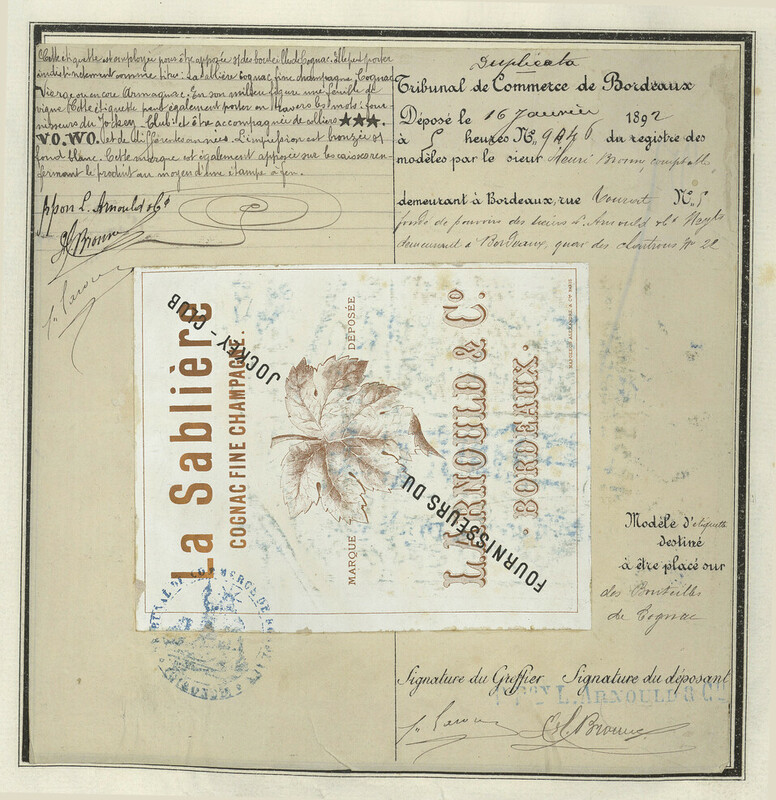 Cette étiquette est employée pour être apposée sur des bouteilles de Cognac. Elle peut porter
indistinctement comme titres : La Sablière Cognac fine champagne, Cognac
Vierge ou encore Armagnac. En son milieu figure une feuille de
vigne. Cette étiquette peut également porter en travers les mots : four-
nisseurs du Jockey Club : et être accompagnée de colliers ★★★.
VO. WO. et de différentes années. L'impression est bronzée sur
fond blanc. Cette marque est également apposée sur les caisses ren-
fermant le produit au moyen d'une étampe à feu.
Ppon L. Arnould & Cº
Duplicata
Tribunal de Commerce de Bordeaux
Déposé le 16 Janvier 1892
à heures Nº 9846 du registre des
modèles par le sieur Henri Brown, comptable,
demeurant à Bordeaux, rue Nº 5
fondé de pouvoirs des sieurs L. Arnould & Cº
demeurant à Bordeaux, quai des Chartrons Nº 22
La Sablière
COGNAC FINE CHAMPAGNE.
MARQUE DÉPOSÉE
FOURNISSEURS DU JOCKEY-CLUB
L. ARNOULD & Cº.
· BORDEAUX ·
TRIBUNAL DE COMMERCE DE BORDEAUX
(GIRONDE)
Modèle d'étiquette
destiné
à être placé sur
des Bouteilles
de Cognac
Signature du Greffier Signature du déposant
PPON L. ARNOULD & Cº